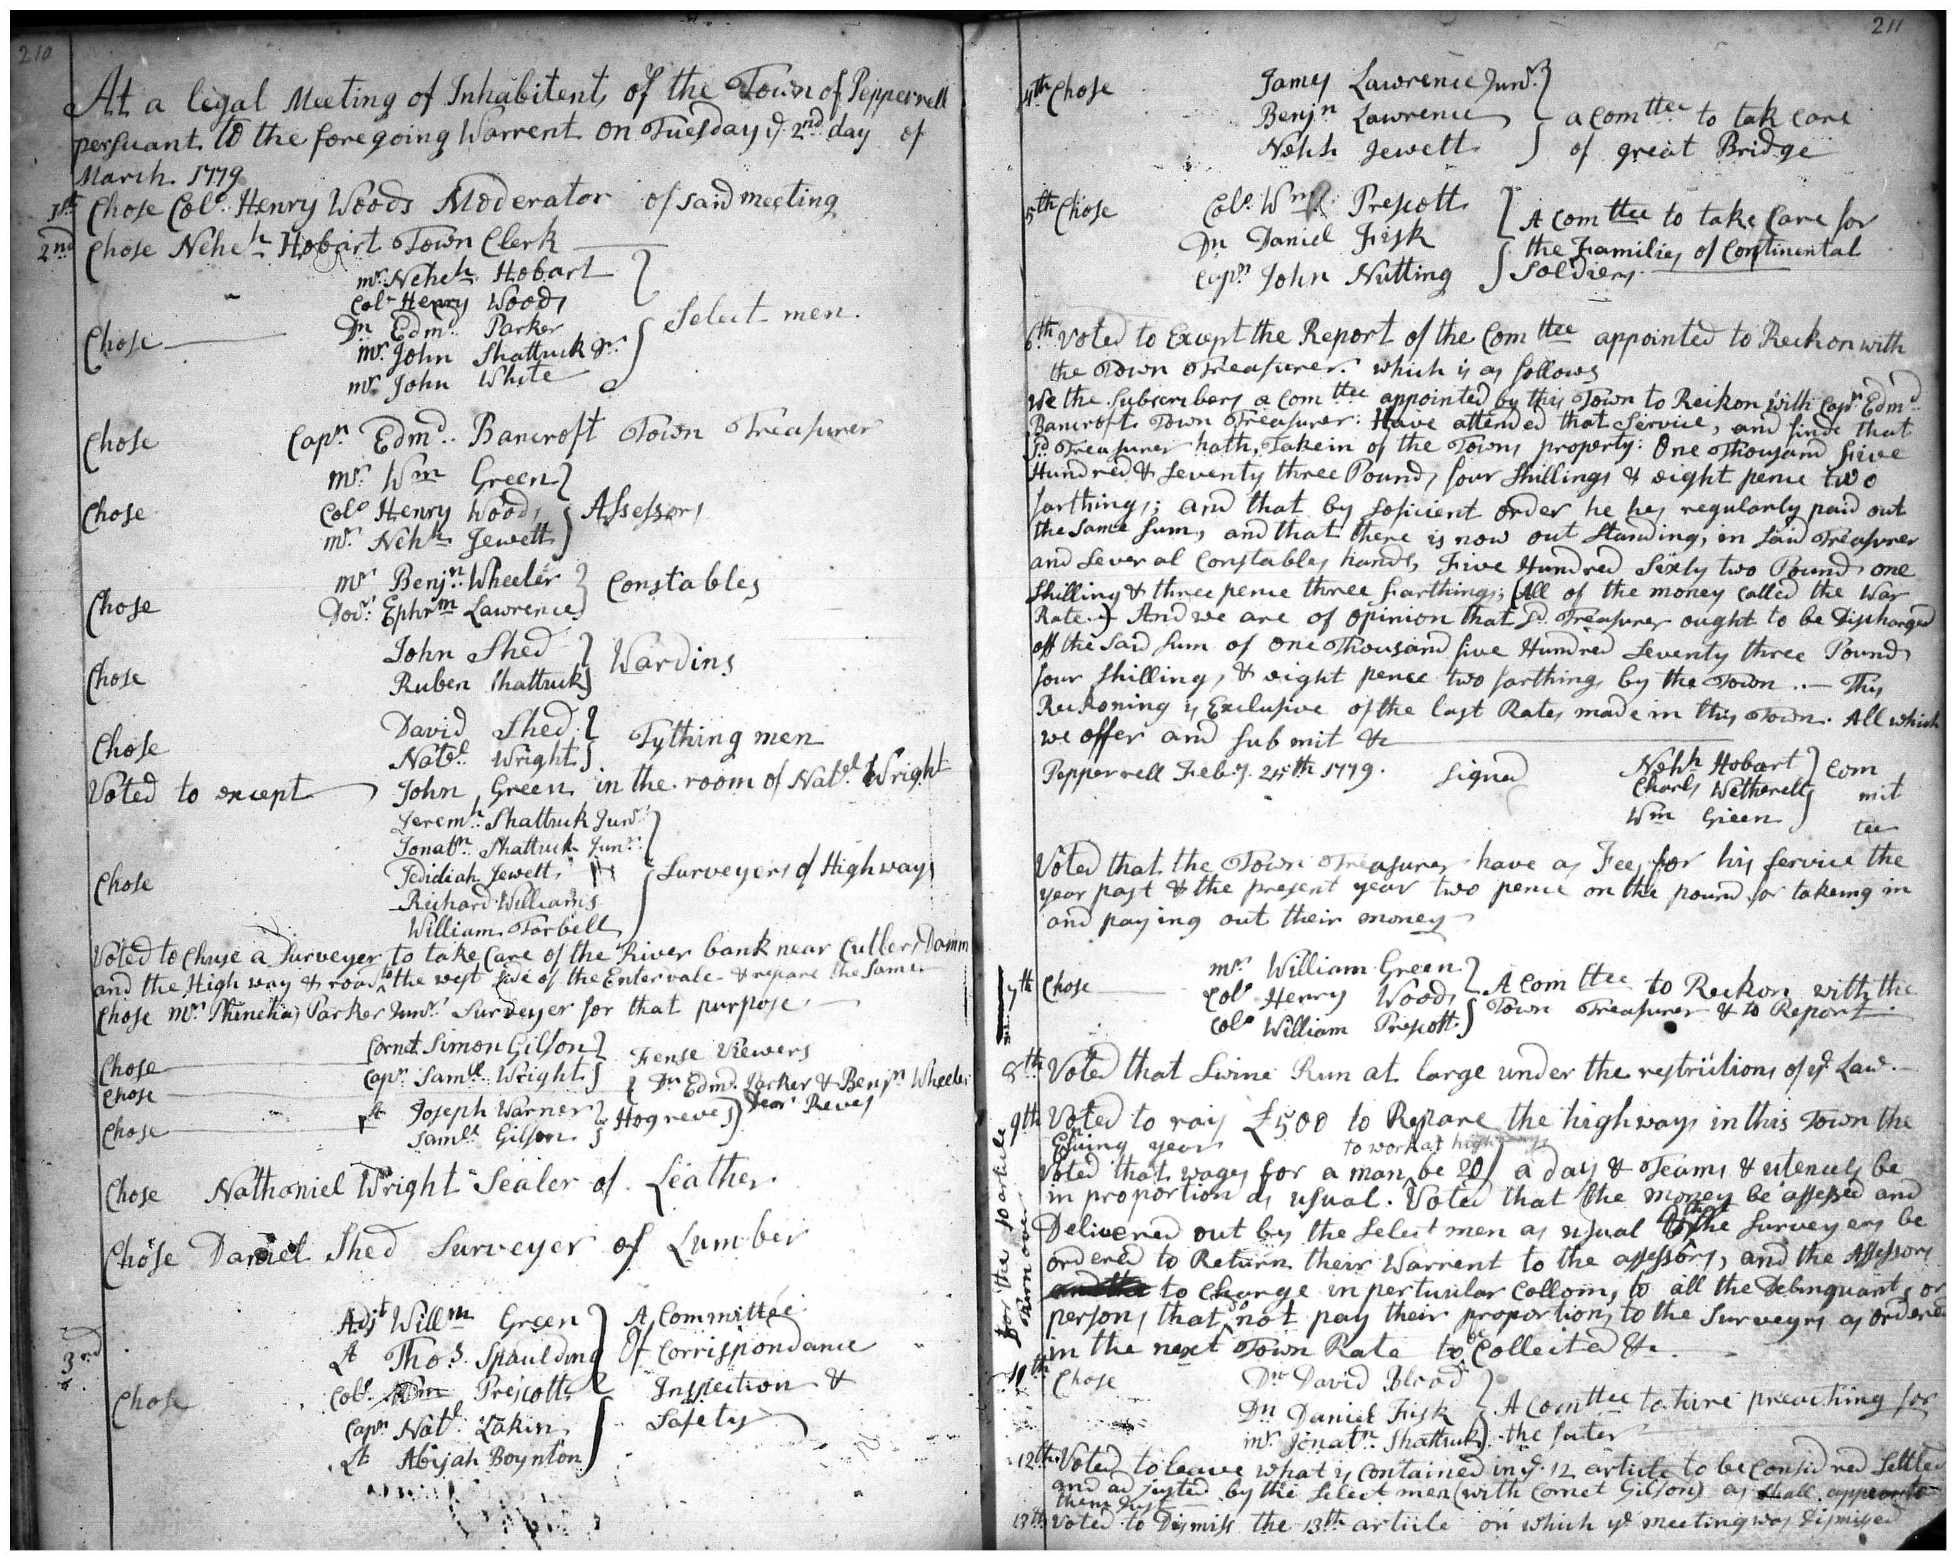 210
At a legal Meeting of Inhabitents of the Town of Pepperrell
persuant to the foregoing Warrent on Tuesday ye 2nd day of
March. 1779
1st Chose Colo. Henry Woods Moderator of said meeting
2nd Chose Neheh Hobart Town Clerk
mr. Neheh. Hobart
Colo Henry Woods
Dn Edmd. Parker
Chose Select men.
mr. John Shattuck Jr.
mr. John White
Chose Capn Edmd. Bancroft Town Treasurer
mr. Wm Green
Chose Colo Henry Woods Assessors
mr. Nehh Jewett
mr Benjn. Wheeler Constables
Chose Docr. Ephrm Lawrence
John Shed Wardins
Chose Ruben Shattuck
David Shed Tything men
Chose Natel. Wright
Voted to except John Green in the room of Natel Wright
Jeremh. Shattuck Junr.
Jonatn. Shattuck Junr.
Chose Jedidiah Jewett Surveyers of Highways
Richard Williams
William Tarbell
Voted to Chuse a Surveyer to take Care of the River bank near Cutlers Damm
and the High way & road to the west side of the Entervale & repare the Same
Chose Mr. Phinehas Parker Junr. Surveyer for that purpose
Cornet Simon Gilson Fense Viewers
Chose Capn. Samll. Wright
Chose Dn Edmd. Parker & Benjn Wheeler Dear Reves
Lt Joseph Warner Hogreves
Chose Samll. Gilson
Chose Nathaniel Wright Sealer of Leather
Chose Daniel Shed Surveyer of Lumber
Adjt Willm Green A Committee
3rd Lt Thos. Spaulding Of Corrispondance
Colo. Wm Prescott Inspection &
Chose Capn Natl. Lakin Safety
Lt Abijah Boynton
211
4th Chose James Lawrence Junr.
Benjn Lawrence a Comttee to tak care
Nehh Jewett of great Bridge
5th Chose Colo. Wm Prescott A Comttee to take Care for
Dn Daniel Fisk the Families of Continental
Capn John Nutting Soldiers.
6th Voted to Except the Report of the Comttee appointed to Reckon with
the Town Treasurer. which is as follows
We the Subscribers a Comttee appointed by this Town to Reckon with Capn. Edmd.
Bancroft Town Treasurer: Have attended that Service, and finde that
Sd. Treasurer hath Takein of the Towns property: One Thousand five
Hundred & Seventy three Pounds four Shillings & eight pence two
farthings; and that by soficient order he hes regularly paid out
the Same Sum, and that there is now out Standing, in said Treasurer
and Several Constables hands, Five Hundred Sixty two Pounds one
Shilling & three pence three farthings; (All of the money called the War
Rate.) And we are of opinion that Sd. Treasurer ought to be Discharged
off the Said Sum of One Thousand five Hundred Seventy three Pounds
four Shillings & eight pence two farthings by the Town. — This
Reckoning is Exclusive of the last Rates made in this Town. All which
we offer and Submit &c
Pepperrell Feby. 25th 1779. Signed Nehh Hobart Com
Charls Wetherell mit
Wm Green tee
Voted that the Town Treasurer have as Fees for his Service the
year past & the present year two pence on the pound for takeing in
and paying out their money
7th Chose mr. William Green
Colo Henry Woods A Comttee to Reckon with the
Colo William Prescott Town Treasurer & to Report
8th Voted that Swine Run at large under the restrictions of ye Law.
9th Voted to rais £500 to Repare the highways in this Town the
Ensuing year to work at highways
Voted that wages for a man be 20/ a day & Teams & utencels be
in proportion as usual. Voted that the money be assessed and
Delivered out by the Select men as usual & that the Surveyers be
ordered to Return their Warrent to the assessors, and the Assessors
and the to Charge in perticular Collom, to all the Delinquants or
persons that do not pay their proportion, to the Surveyrs as ordered
in the next Town Rate to be Collected &c.
for the 10 article turn over
11th Chose Dn David Blood
Dn Daniel Fisk A Comttee to hire preaching for
mr. Jonatn. Shattuck the futer
12th Voted to leave what is contained in ye 12 article to be Considred Settled
and adjusted by the Select men (with Cornet Gilson) as shall appear to
them Just
13th Voted to Dismiss the 13th article on which ye meeting was Dismissed